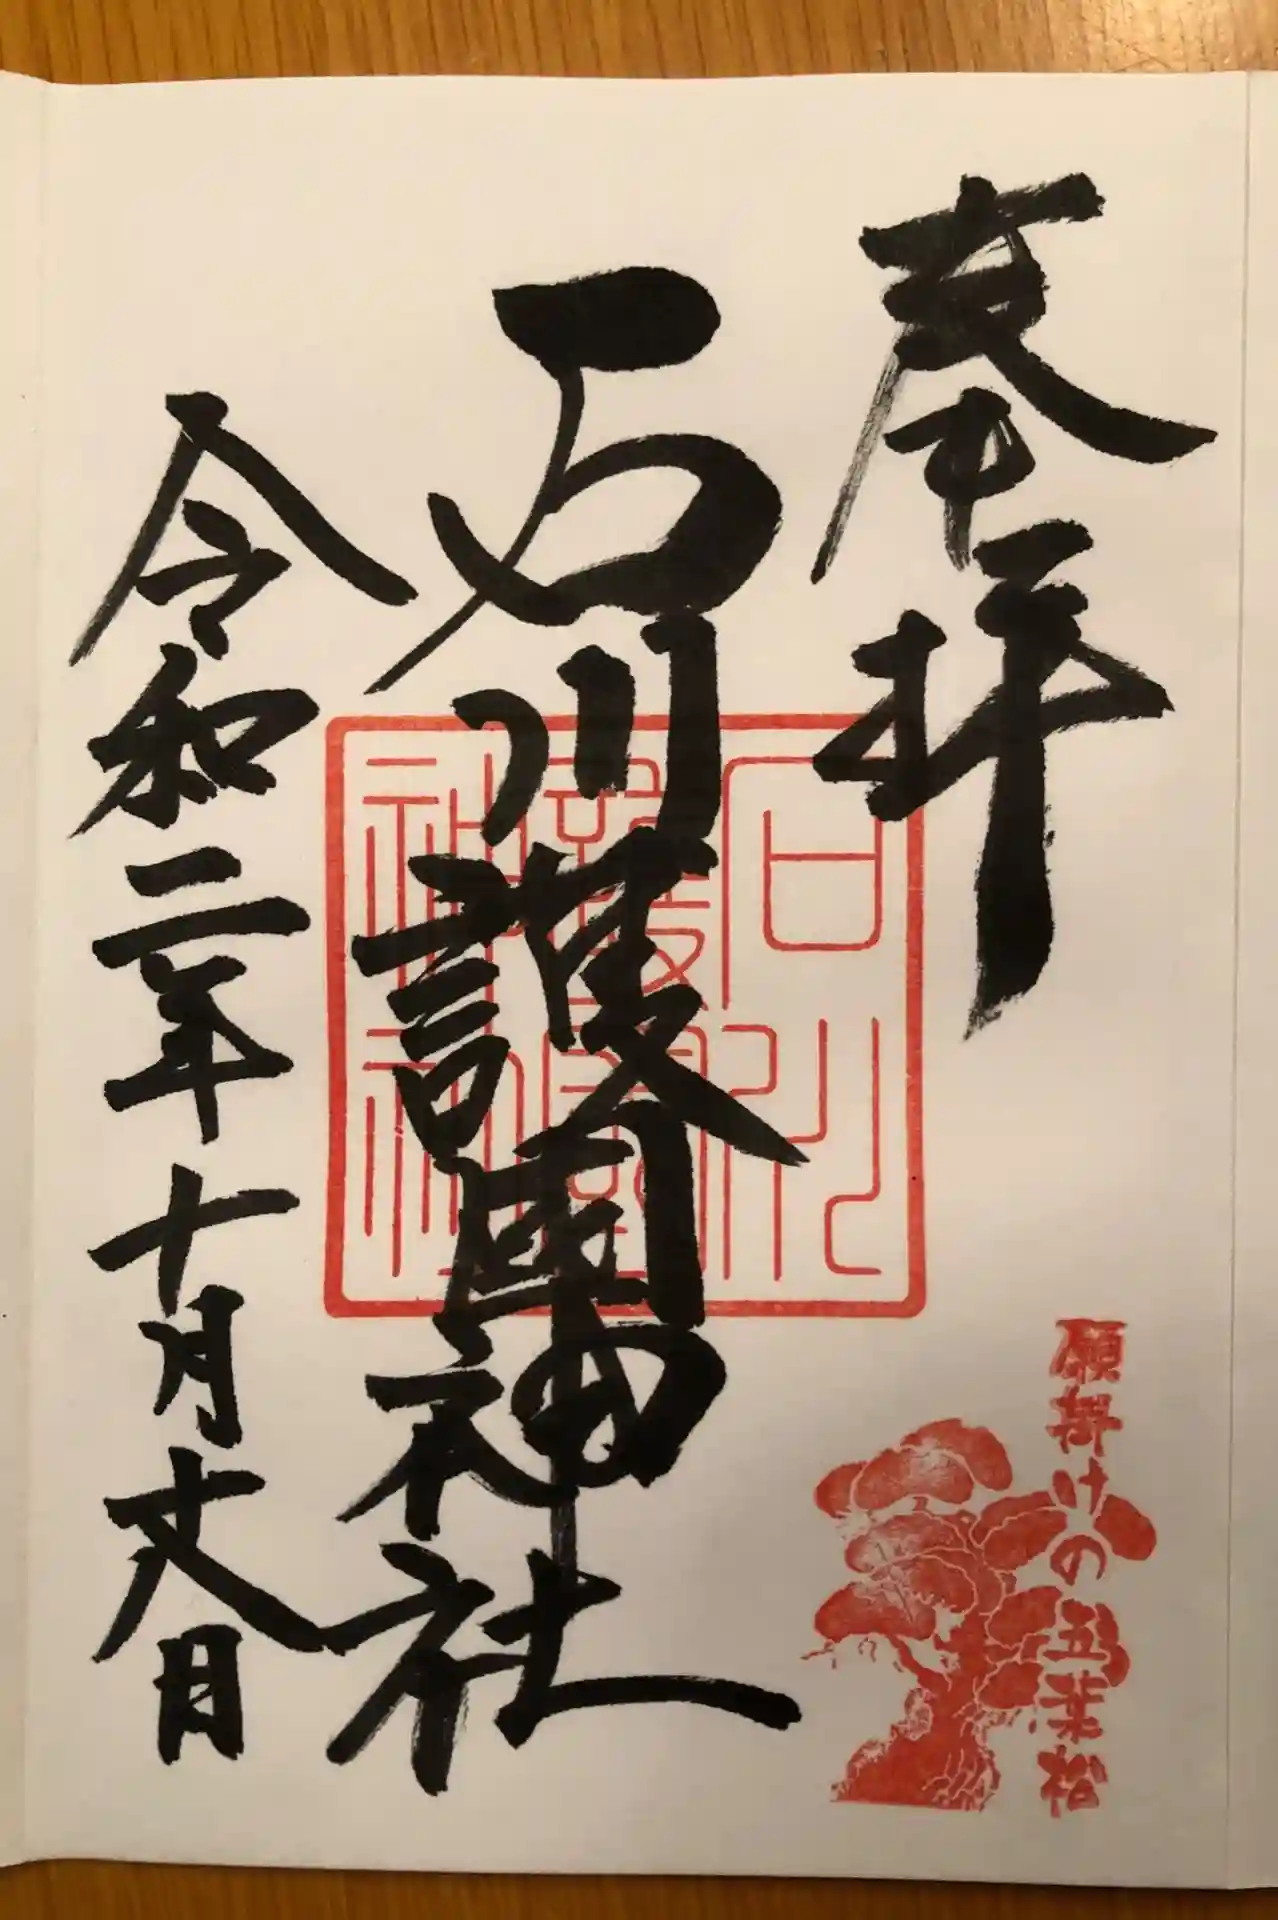 奉拝
石川護國神社
令和二年十月丈日
石川
護國
神社
願掛けの五葉松